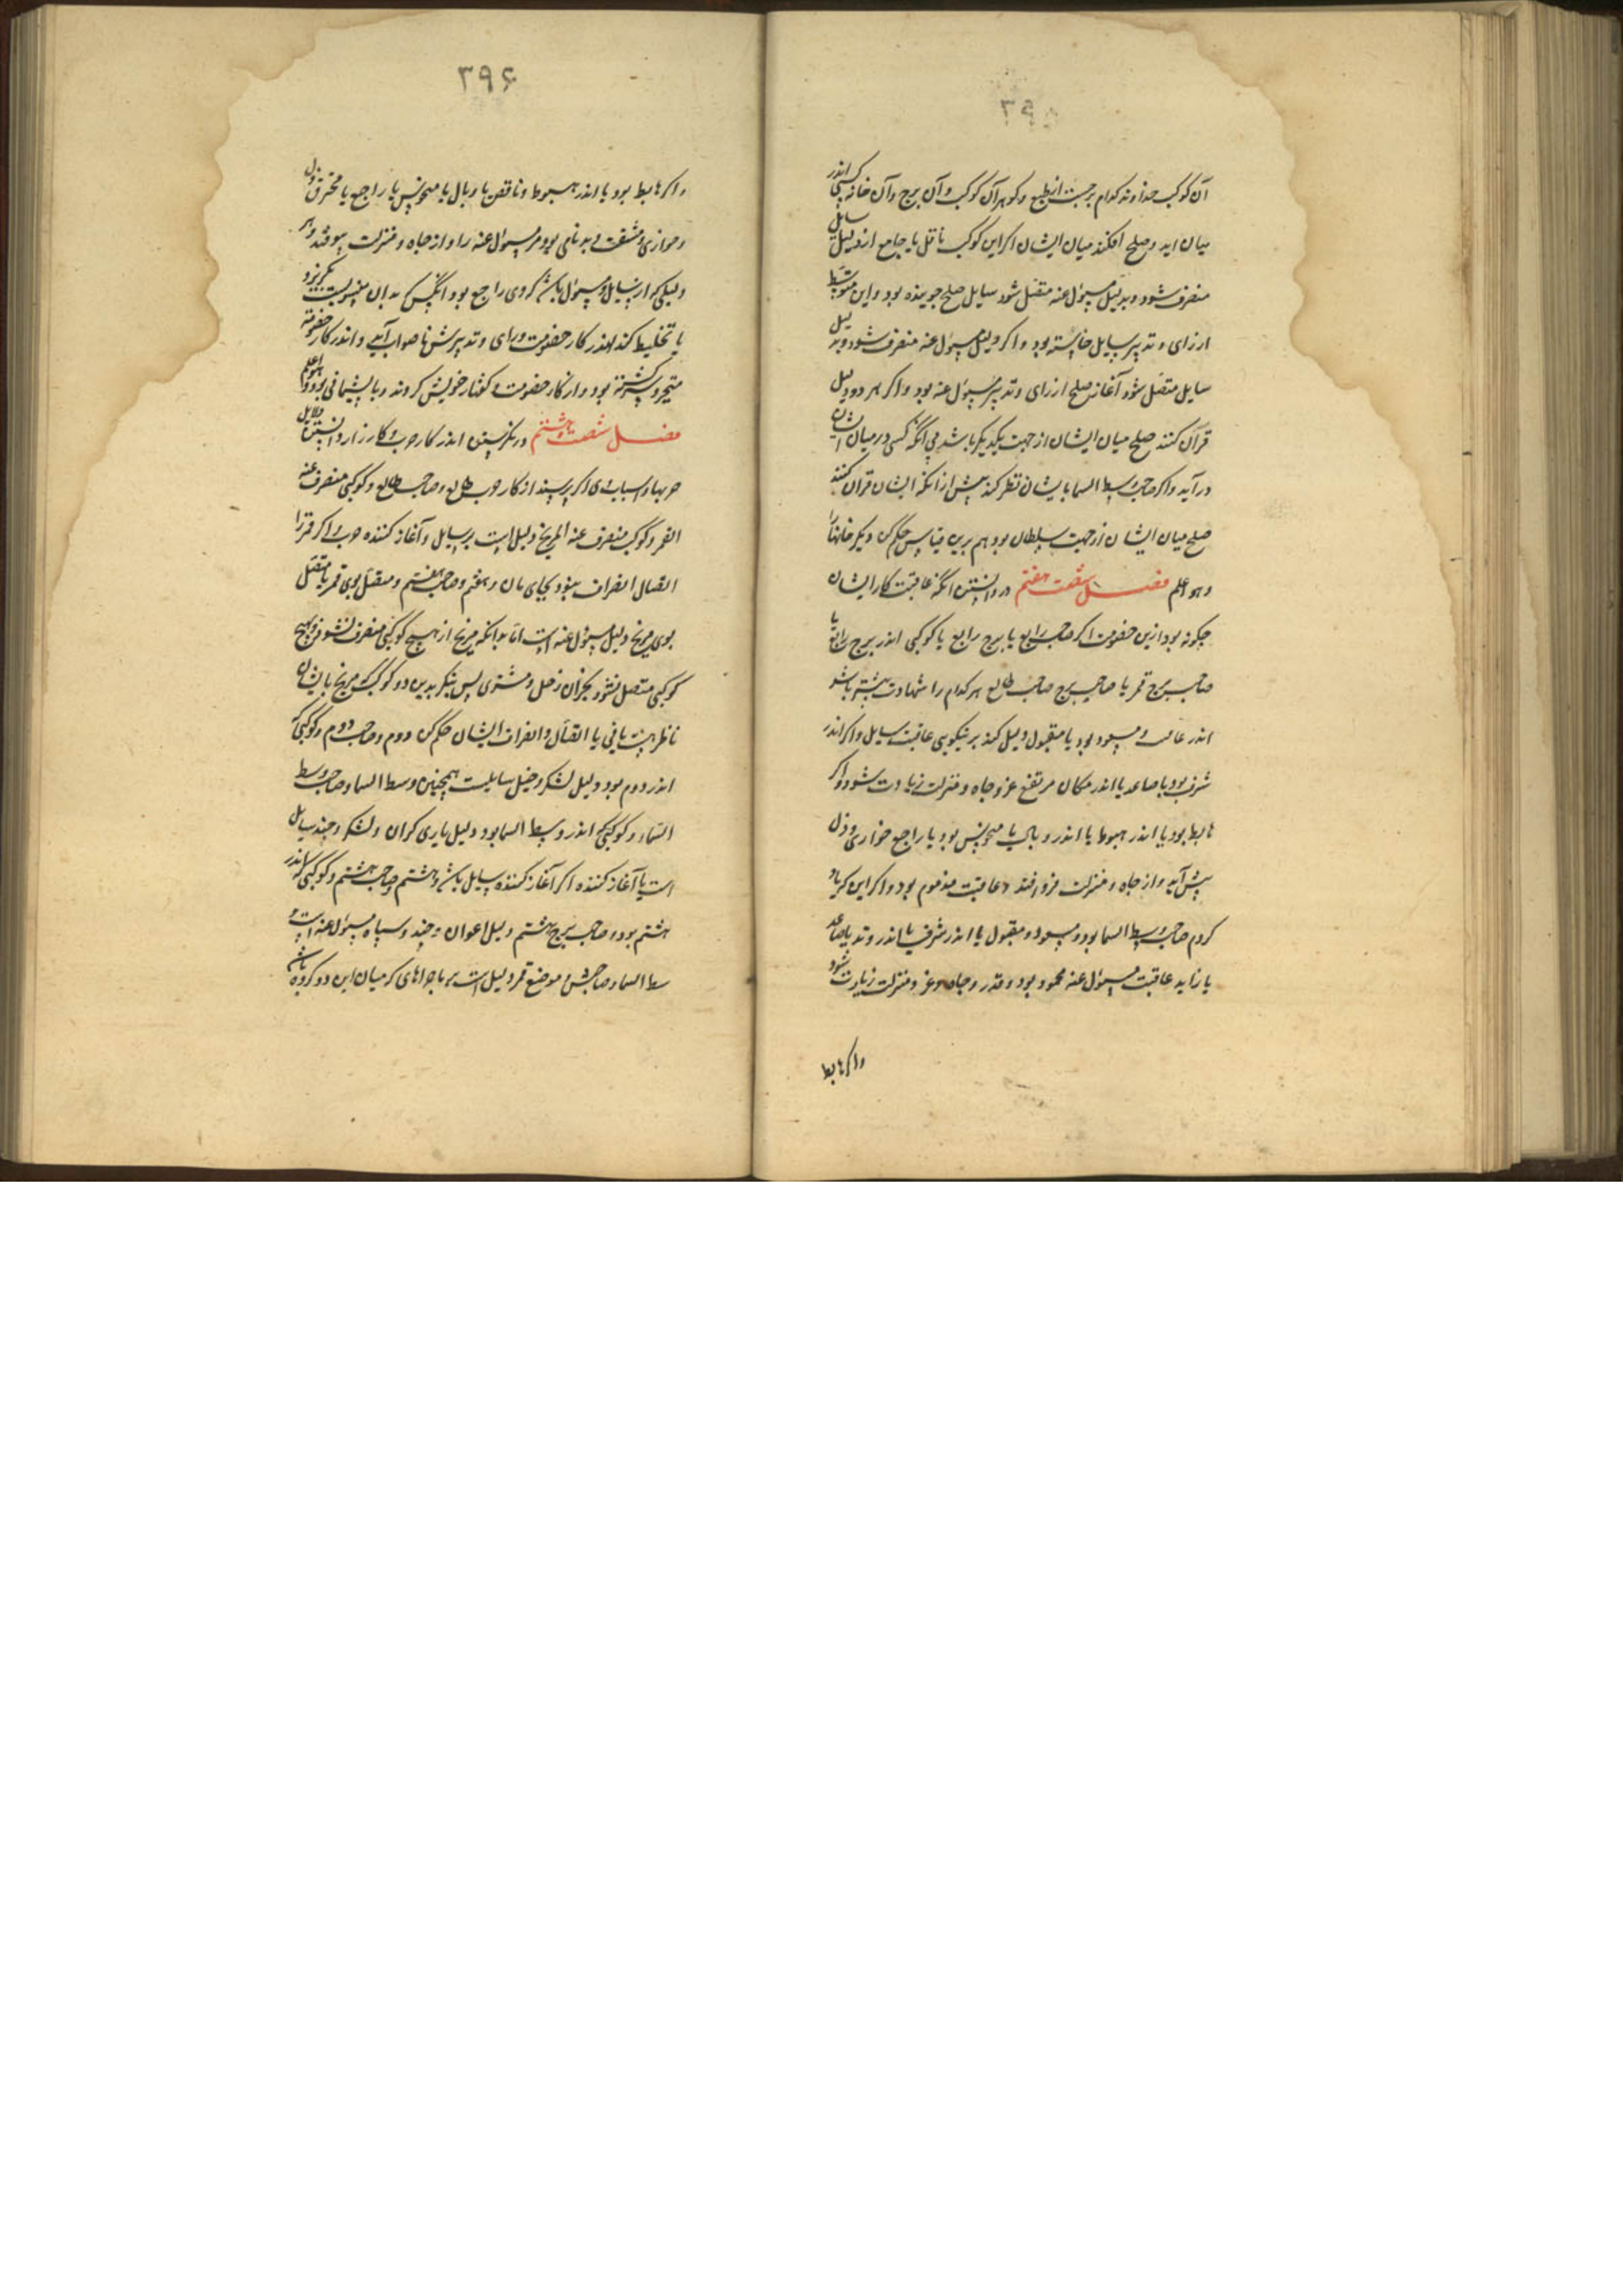 ۳۹۵
آن کوکب خداوند کدام برجست از طبع و کوهر آن کوکب و آن برج و آن خانه کسی اندر
میان اید و صلح افکند میان ایشان اکر این کوکب ناقل یا جامع از دلیل سایل
منصرف شود و بدلیل مسؤل عنه متصل شود سایل صلح جوینده بود و این متوسط
از رای و تدبیر سایل خاسته بود و اکر دلیل مسؤل عنه منصرف شود و بدلیل
سایل متصل شود آغاز صلح از رای و تدبیر مسؤل عنه بود و اکر هر دو دلیل
قرآن کنند صلح میان ایشان از جهت یکدیکر باشد بی آنکه کسی در میان ایشان
در آید و اکر صاحب وسط السما بایشان نظر کند پیش از انکه ایشان قران کنند
صلح میان ایشان از جهت سلطان بود هم برین قیاس حکم کن دیکر خانها را
و هو اعلم فصل شصت هفتم در دانستن انکه عاقبت کار ایشان
چکونه بود ازین خصومت اکر صاحب رابع یا برج رابع یا کوکبی اندر برج رابع یا
صاحب برج قمر یا صاحب برج صاحب طالع هر کدام را شهادت بیشتر باشد
اندر عاقبت و مسعود بود یا مقبول دلیل کند بر نیکویی عاقبت سایل و اکر اندر
شرف بود یا صاعد یا اندر مکان مرتفع عز و جاه و منزلت زیادت شود و اکر
هابط بود یا اندر هبوط یا اندر وبال یا منحوس بود یا راجع خواری و ذل
پیش آید و از جاه و منزلت فرو افتد و عاقبت مذموم بود و اکر این کی یاد
کردم صاحب وسط السما بود و مسعود و مقبول یا اندر شرف یا اندر وتد یا صاعد
یا زاید عاقبت مسؤل عنه محمود بود و قدر و جاه و عز و منزلت زیادت شود
و اکر هابط
۳۹۶
و اکر هابط بود یا اندر هبوط و ناقص یا وبال یا منحوس یا راجع یا محترق ذل
و خواری و مشقت و بدنامی بود مر مسؤل عنه را و از جاه و منزلت بیوفتد و هر
دلیلی کی از سایل و مسؤل باشد کی وی راجع بود انکس کی بدان منسوبست بکریزد
یا تخلیط کند اندر کار خصومت و رای و تدبیرش ناصواب آید و اندر کار خصومت
متحیر و سرکشته بود و از کار خصومت و کفتار خویش کروند و با پشیمانی بود و الله اعلم
فصل شصت و هشتم در نکرستن اندر کار حرب و کارزار و دانستن دلایل
حربها و اسبابهای اکر پرسند از کار حرب طالع و صاحب طالع و کوکبی منصرف عنه
القمر و کوکب منصرف عنه المریخ دلیل است بر سایل و آغاز کننده حرب و اکر قمر را
اتصال انصراف نبود بجای مان و هفتم و صاحب هفتم و متصل بوی قمر یا متصل
بوی مریخ دلیل مسؤل عنه است اما بدانکه مریخ از هیچ کوکبی منصرف نشود و بهیچ
کوکبی متصل نشود بجز آن زحل و مشتری پس بنکر بدین دو کوکب مریخ بایشان
ناظر هست یا نی یا اتصال و انصراف ایشان حکم کن دوم و صاحب دوم و کوکبی کی
اندر دوم بود دلیل لشکر و خیل سایلست همچنین وسط السما و صاحب وسط
السماء و کوکبی کی اندر وسط السما بود دلیل یاری کران و لشکر و جند سایل
است یا آغاز کننده اکر آغاز کننده سایل باشد و هشتم و صاحب هشتم و کوکبی کی اندر
هشتم بود و صاحب برج هشتم دلیل اعوان و جند و سپاه مسؤل عنه است و
سط السماء و صاحبش و موضع قمر دلیل است بر ماجراهای کی میان این دو کروه باشد